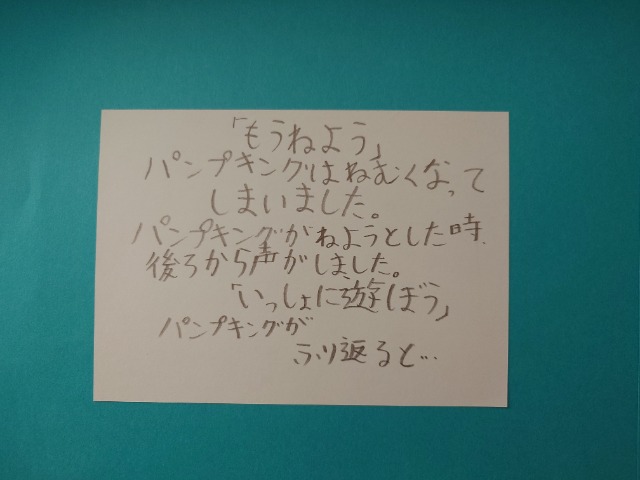 「もうねよう」
パンプキングはねむくなって
しまいました。
パンプキングがねようとした時、
後ろから声がしました。
「いっしょに遊ぼう」
パンプキングが
ふり返ると…